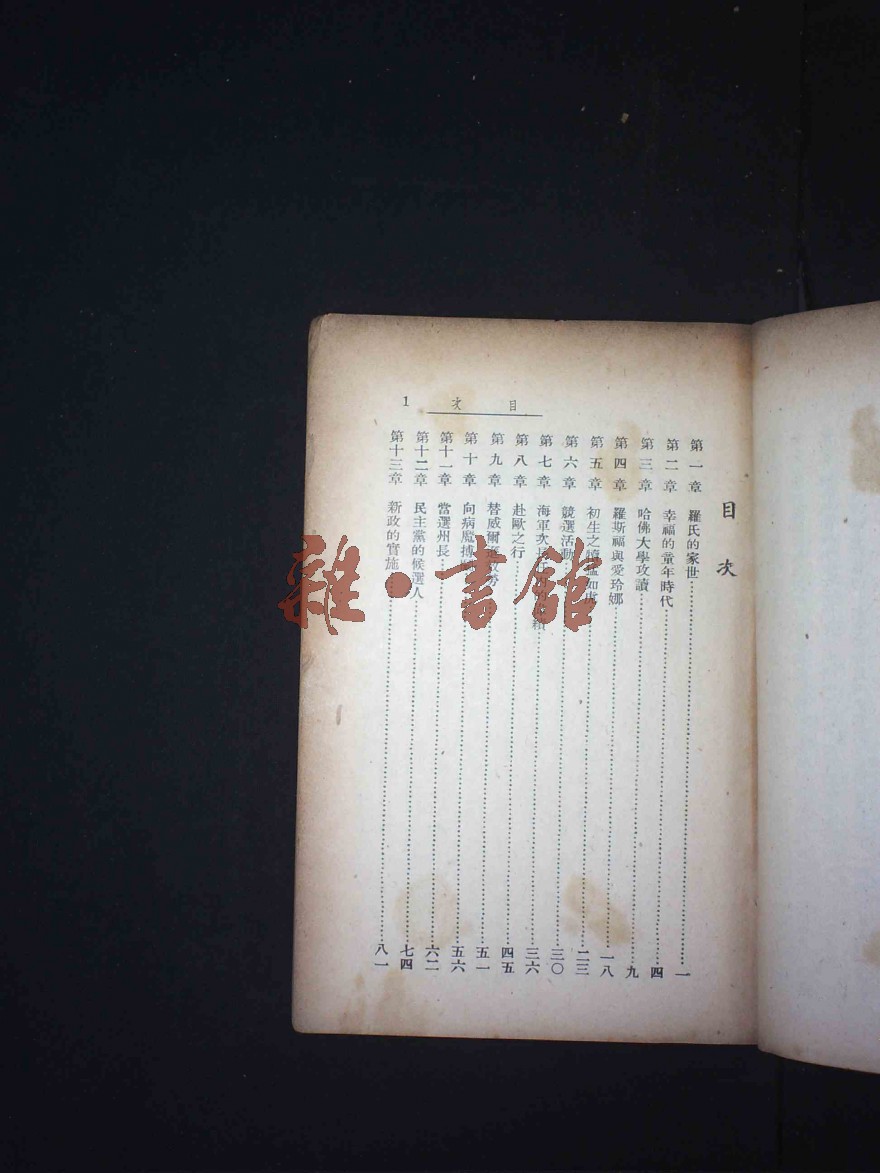 目次
第一章 羅氏的家世 一
第二章 幸福的童年時代 四
第三章 哈佛大學攻讀 九
第四章 羅斯福與愛玲娜 一八
第五章 初生之犢猛如虎 二三
第六章 競選活動 三〇
第七章 海軍次長任 績 三六
第八章 赴歐之行 四五
第九章 替威爾 效勞 五一
第十章 向病魔搏 五六
第十一章 當選州長 六二
第十二章 民主黨的候選人 七四
第十三章 新政的實施 八一
目次 1
雜·書館